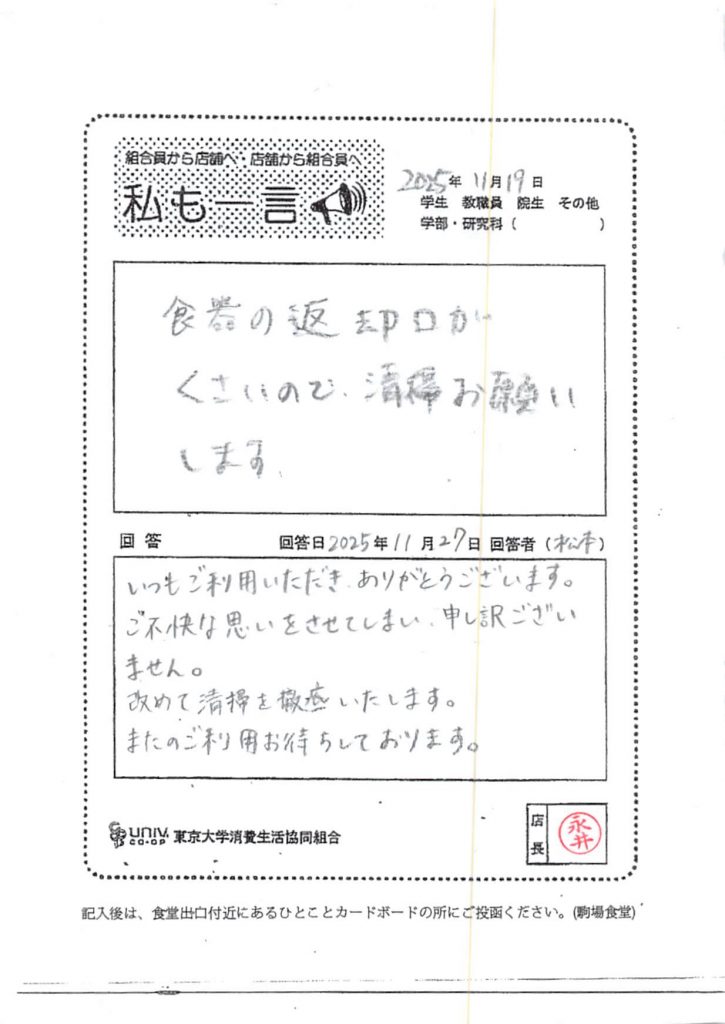 組合員から店舗へ・店舗から組合員へ
私も一言
2025年 11月19日
学生 教職員 院生 その他
学部・研究科（ ）
食器の返却口が
くさいので、清掃お願い
します。
回答 回答日2025年11月27日 回答者（松本）
いつもご利用いただき、ありがとうございます。
ご不快な思いをさせてしまい、申し訳ござい
ません。
改めて清掃を徹底いたします。
またのご利用お待ちしております。
UNIV.
CO-OP
東京大学消費生活協同組合
店長
永井
記入後は、食堂出口付近にあるひとことカードボードの所にご投函ください。(駒場食堂)